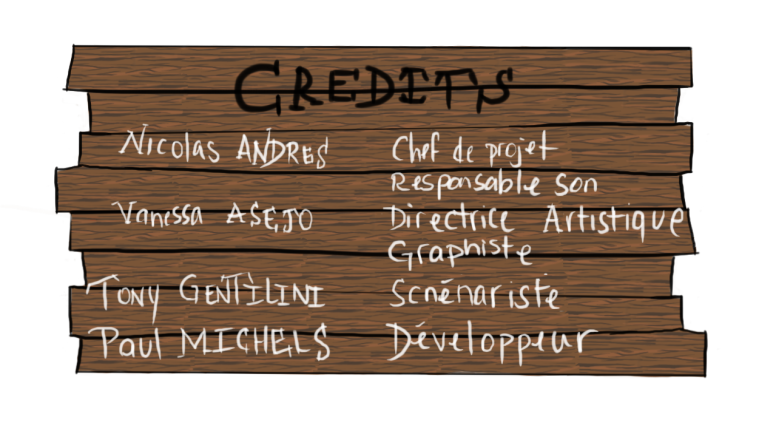 CREDITS
Nicolas ANDRES Chef de projet
Responsable son
Vanessa ASEJO Directrice Artistique
Graphiste
TONY GENTILINI Scnénariste
Paul MICHELS Développeur